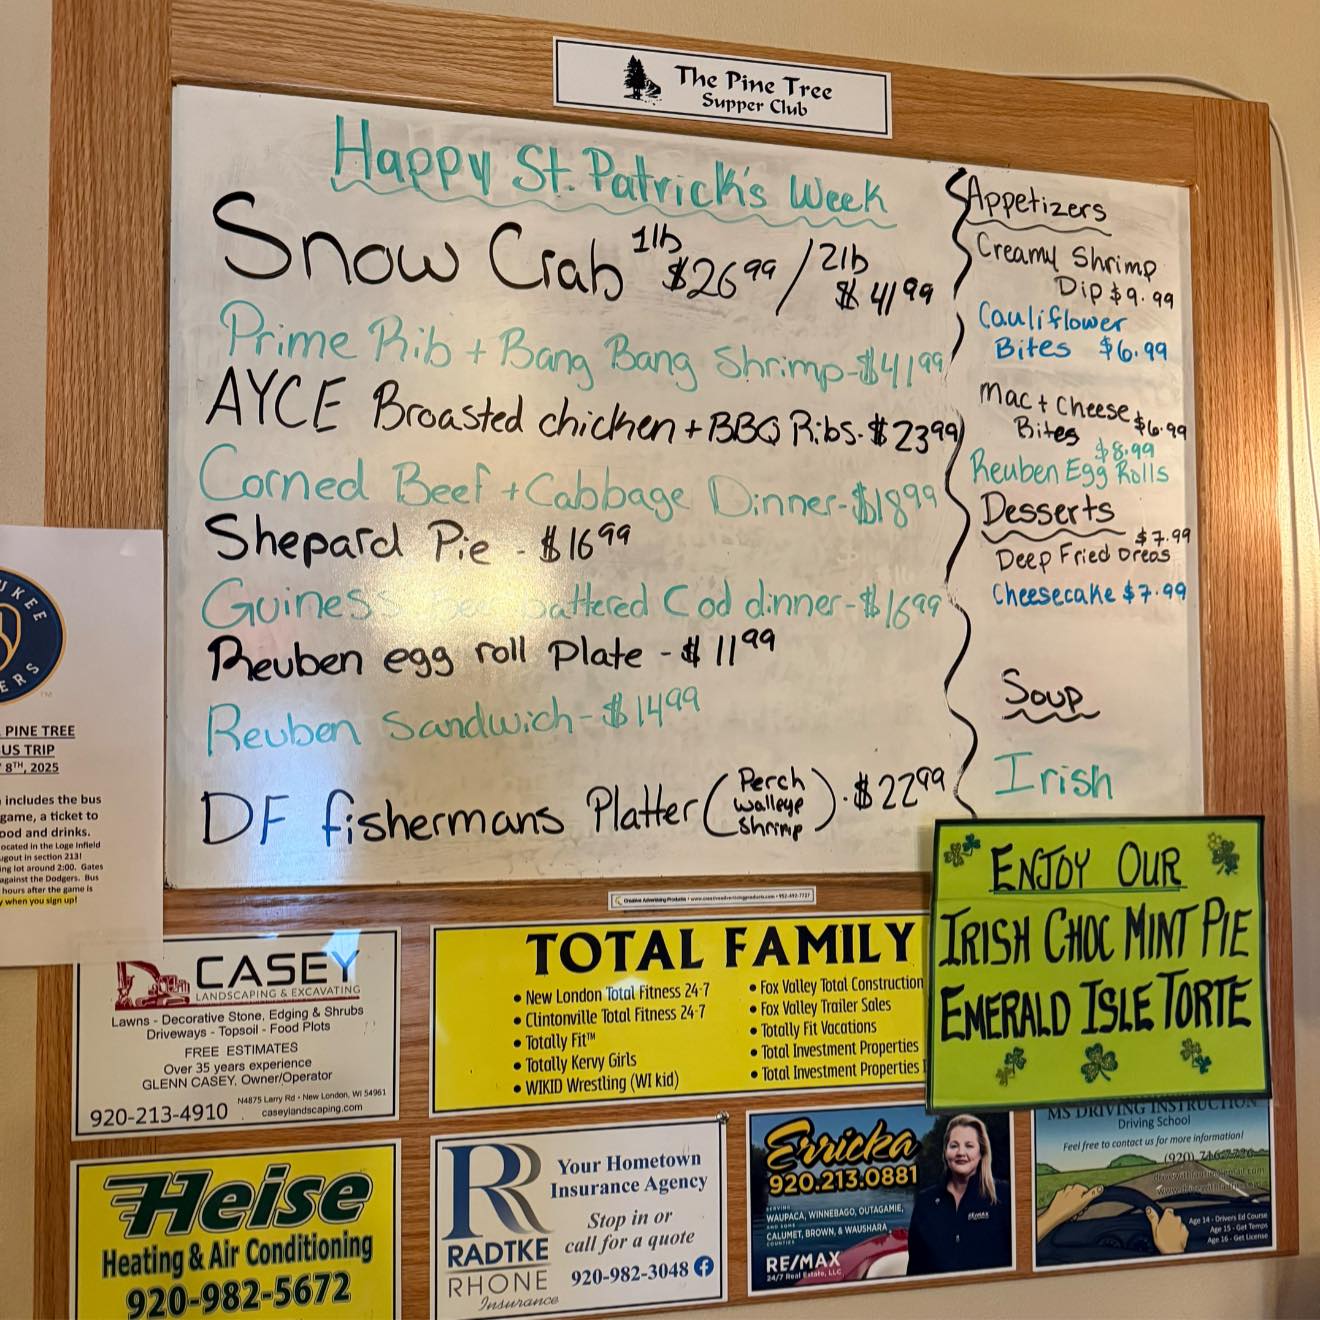 The Pine Tree
Supper Club
Happy St. Patrick's Week
Snow Crab 1lb $26.99 / 2lb $41.99
Prime Rib + Bang Bang Shrimp - $41.99
AYCE Broasted chicken + BBQ Ribs - $23.99
Corned Beef + Cabbage Dinner - $18.99
Shepard Pie - $16.99
Guiness battered Cod dinner - $16.99
Reuben egg roll Plate - $11.99
Reuben Sandwich - $14.99
DF fishermans Platter (Perch Walleye Shrimp) - $22.99
Appetizers
Creamy Shrimp
Dip $9.99
Cauliflower
Bites $6.99
Mac + Cheese
Bites $6.99
$8.99
Reuben Egg Rolls
Desserts
$7.99
Deep Fried Oreos
Cheesecake $7.99
Soup
Irish
ENJOY OUR
IRISH CHOC MINT PIE
EMERALD ISLE TORTE
UKEE
ERS
PINE TREE
US TRIP
8TH, 2025
includes the bus
game, a ticket to
ood and drinks.
ocated in the Loge Infield
ugout in section 213!
ing lot around 2:00. Gates
against the Dodgers. Bus
hours after the game is
y when you sign up!
Creative Advertising Products • www.creativeadvertisingproducts.com • 952-492-7727
CASEY
LANDSCAPING & EXCAVATING
Lawns - Decorative Stone, Edging & Shrubs
Driveways - Topsoil - Food Plots
FREE ESTIMATES
Over 35 years experience
GLENN CASEY, Owner/Operator
920-213-4910
N4875 Larry Rd • New London, WI 54961
caseylandscaping.com
TOTAL FAMILY
• New London Total Fitness 24-7
• Clintonville Total Fitness 24-7
• Totally Fit™
• Totally Kervy Girls
• WIKID Wrestling (WI kid)
• Fox Valley Total Construction
• Fox Valley Trailer Sales
• Totally Fit Vacations
• Total Investment Properties
• Total Investment Properties I
Heise
Heating & Air Conditioning
920-982-5672
RADTKE
RHONE
Insurance
Your Hometown
Insurance Agency
Stop in or
call for a quote
920-982-3048
Erricka
920.213.0881
SERVING
WAUPACA, WINNEBAGO, OUTAGAMIE,
CALUMET, BROWN, & WAUSHARA
COUNTIES
RE/MAX
24/7 Real Estate, LLC
MS DRIVING INSTRUCTION
Driving School
Feel free to contact us for more information!
(920)
Age 14 - Drivers Ed Course
Age 15 - Get Temps
Age 16 - Get License